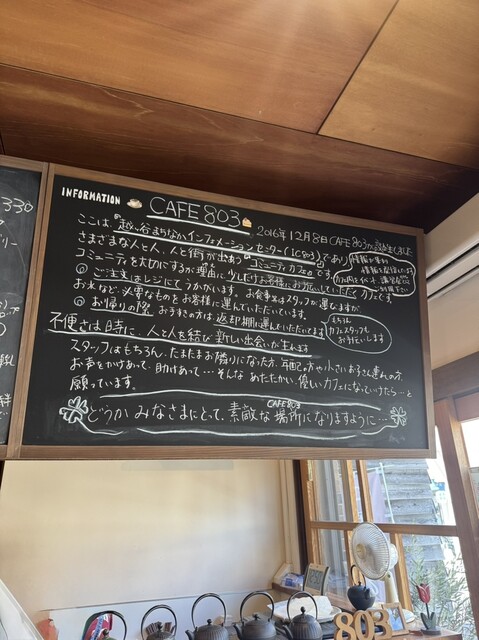 330
INFORMATION CAFE 803
2016年12月8日 CAFE803が誕生しました
ここは、『越ヶ谷まちなかインフォメーションセンター(IC803)』であり
さまざまな人と人、人と街が出会う『コミュニティカフェ』です。
コミュニティを大切にするが理由に、少しだけお客様にお世話していただくカフェです。
◎ご注文はレジにてうかがいます。お食事はスタッフが運びますが
お水など、必要なものをお客様に運んでいただいています。
◎お帰りの際、お手すきの方は返却棚に運んでいただいてます
もちろん
カフェスタッフも
お手伝いします
不便さは時に…人と人を結び新しい出会いが生まれます
スタッフはもちろん、たまたまお隣りになった方、年配の方や小さいお子さん連れの方、
お声をかけあって、助けあって…そんな あたたかい、優しいカフェになっていけたら…と
願っています。
CAFE803
どうか みなさまにとって、素敵な場所になりますように…
803